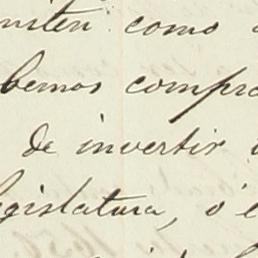 miten como
bemos compro
de invertir
egislatura, ó e